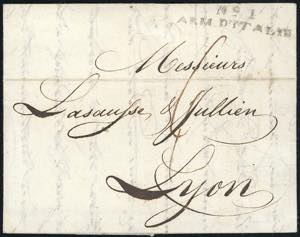 No 1
ARM. D'ITALIE
Messieurs
Lasausse & Jullien
Lyon